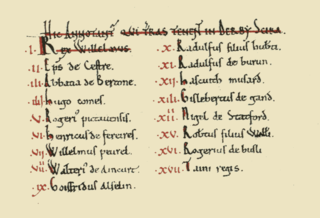 HIC ANNOTANT͛ QUI TRAS TENEN̄T IN DERBY SCIRA.
.I. Rex Willelmus.
.II. Ep̄s de Cestre.
.III. Abbatia de Bertone.
.IIII. Hugo comes.
.V. Rogeri͛ pictauensis.
.VI. Henricus de ferreres.
.VII. Willelmus peurel.
.VIII. Walteri͛ de Aincurt.
.IX. Goisfridus Alselin.
.X. Radulfus filius hub̄ti.
.XI. Radulfus de burun.
.XII. Hascuith musard.
.XIII. Gislebertus de gand.
.XIIII. Nigel de Statford.
.XV. Robtus filius Willi.
.XVI. Rogerius de busli
.XVII. Taini regis.